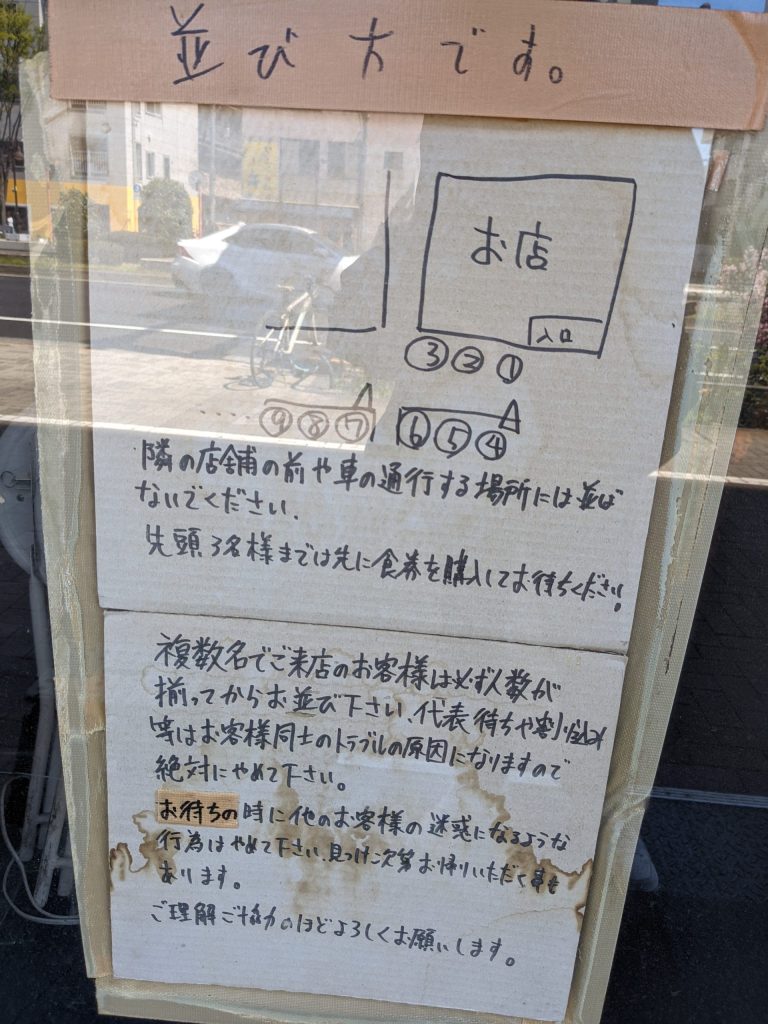 並び方です。
お店
入口
③②①
⑨⑧⑦ ⑥⑤④
隣の店舗の前や車の通行する場所には並ば
ないでください、
先頭3名様までは先に食券を購入してお待ちください。
複数名でご来店のお客様は必ず人数が
揃ってからお並び下さい、代表待ちや割り込み
等はお客様同士のトラブルの原因になりますので
絶対にやめて下さい。
お待ちの時に他のお客様の迷惑になるような
行為はやめて下さい、見つけ次第お帰りいただく事も
あります。
ご理解ご協力のほどよろしくお願いします。